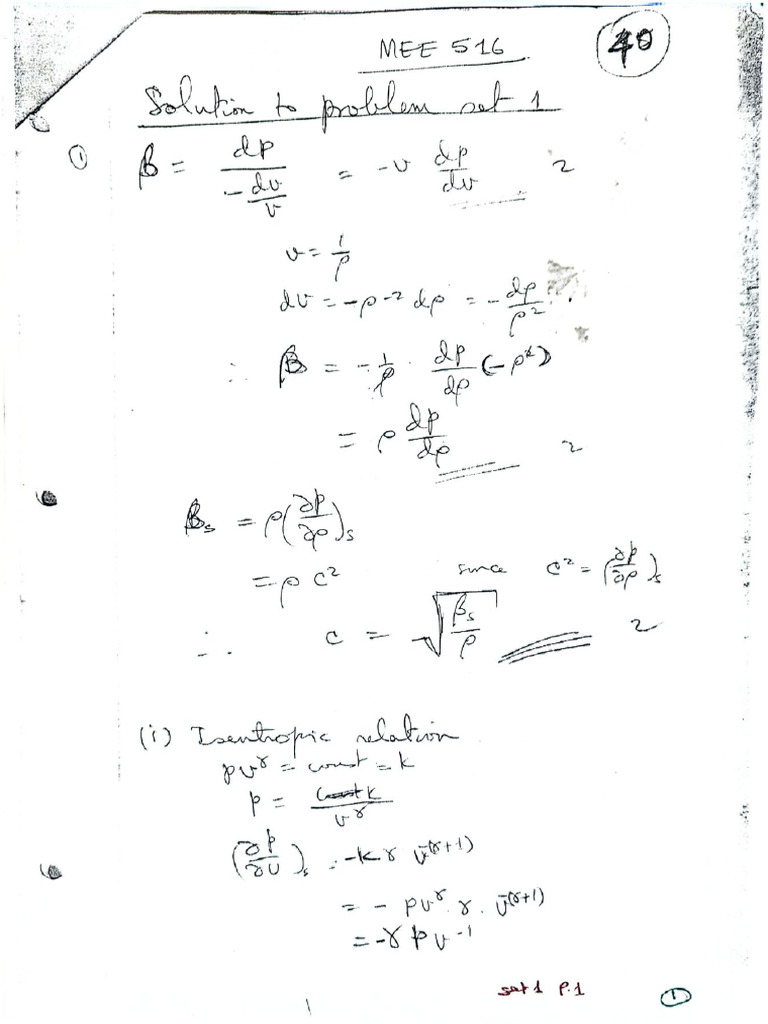 MEE 516
40
Solution to problem set 1
① β = dp / (-dv/v) = -v dp/dv 2
v = 1/ρ
dv = -ρ-2 dρ = -dρ/ρ2
∴ β = -1/ρ · dp/dρ (-ρ2)
= ρ dp/dρ 2
βs = ρ(∂p/∂ρ)s
= ρ c2 since c2 = (∂p/∂ρ)s
∴ c = √(βs/ρ) 2
(i) Isentropic relation
pvγ = const = k
p = k/vγ
(∂p/∂v)s = -kγ v-(γ+1)
= - pvγ. γ. v-(γ+1)
= -γ p v-1
set 1 P.1
①